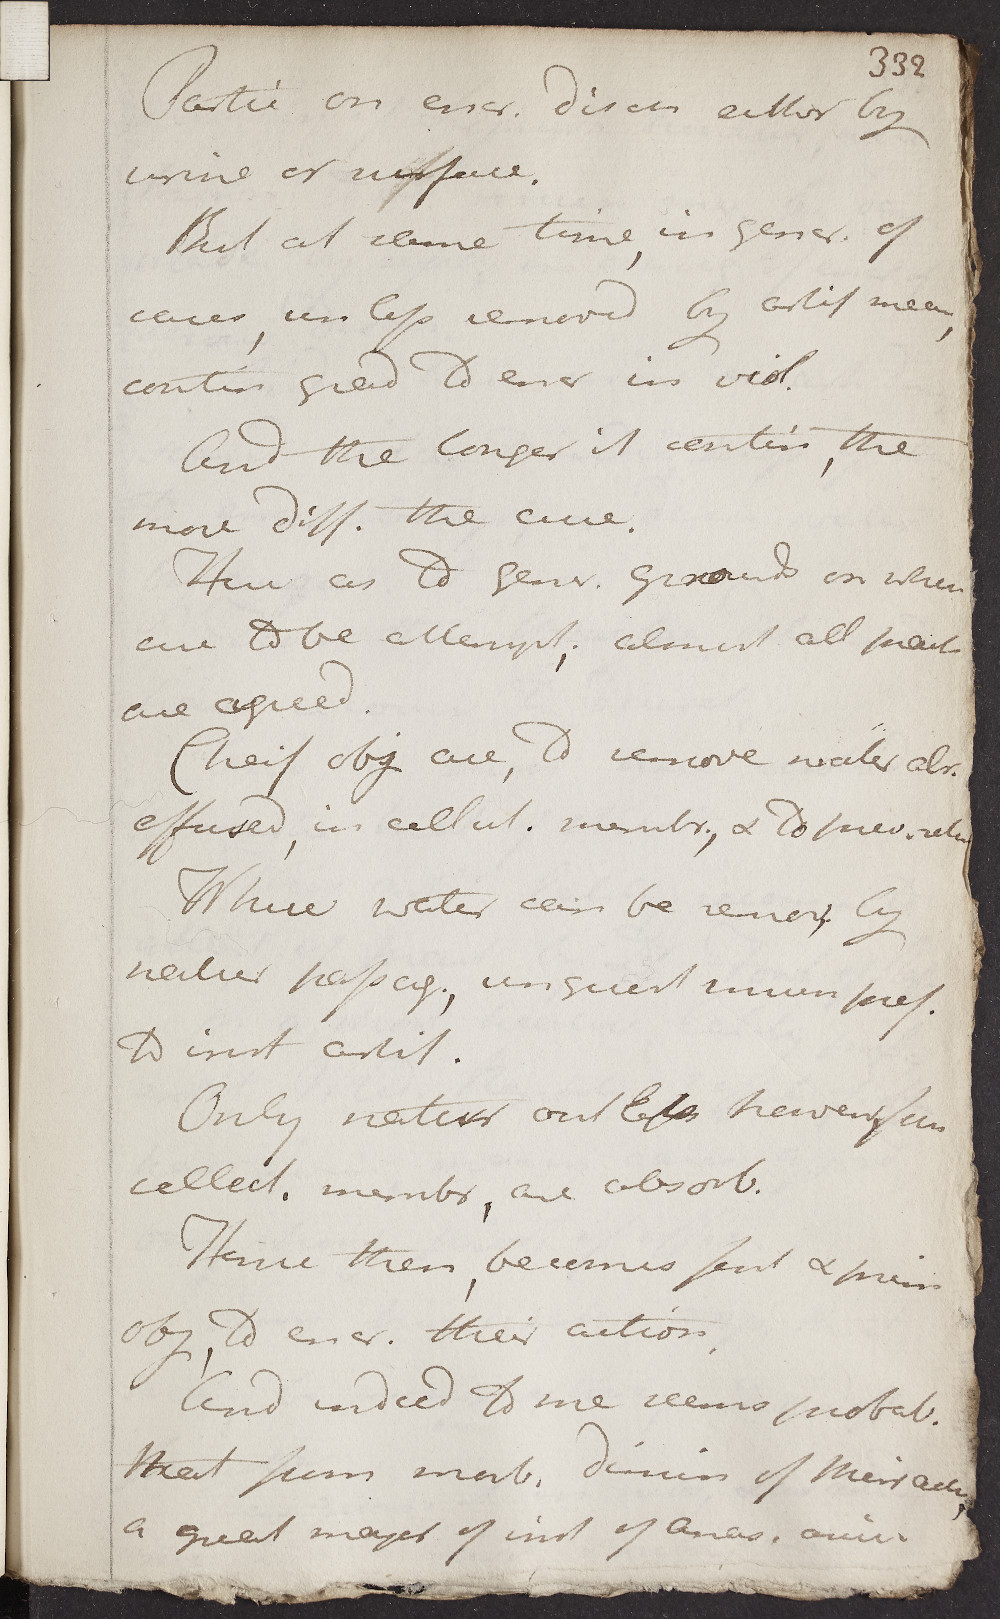 332
Partic on encr. disch either by
urine or surface.
But at same time, in gener. of
cases, unless removed by artif mean,
contin grad to encr in viol.
And the longer it contin, the
more diff. the cure.
Here as to gener. grounds on when
cure to be attempt, almost all pract
are agreed.
Cheif obj are, to remove water alr.
effused, in cellul. membr., & to prev. retu
Where water can be remov, by
natur passag., unquest
to inst artif.
Only natur outlets however from
cellul. membr, are absorb.
Hence then, becomes first & prin
obj, to encr. their action.
And indeed to me seems probab.
that from morb. dimin of their actn,
a great major of inst of anas. arise